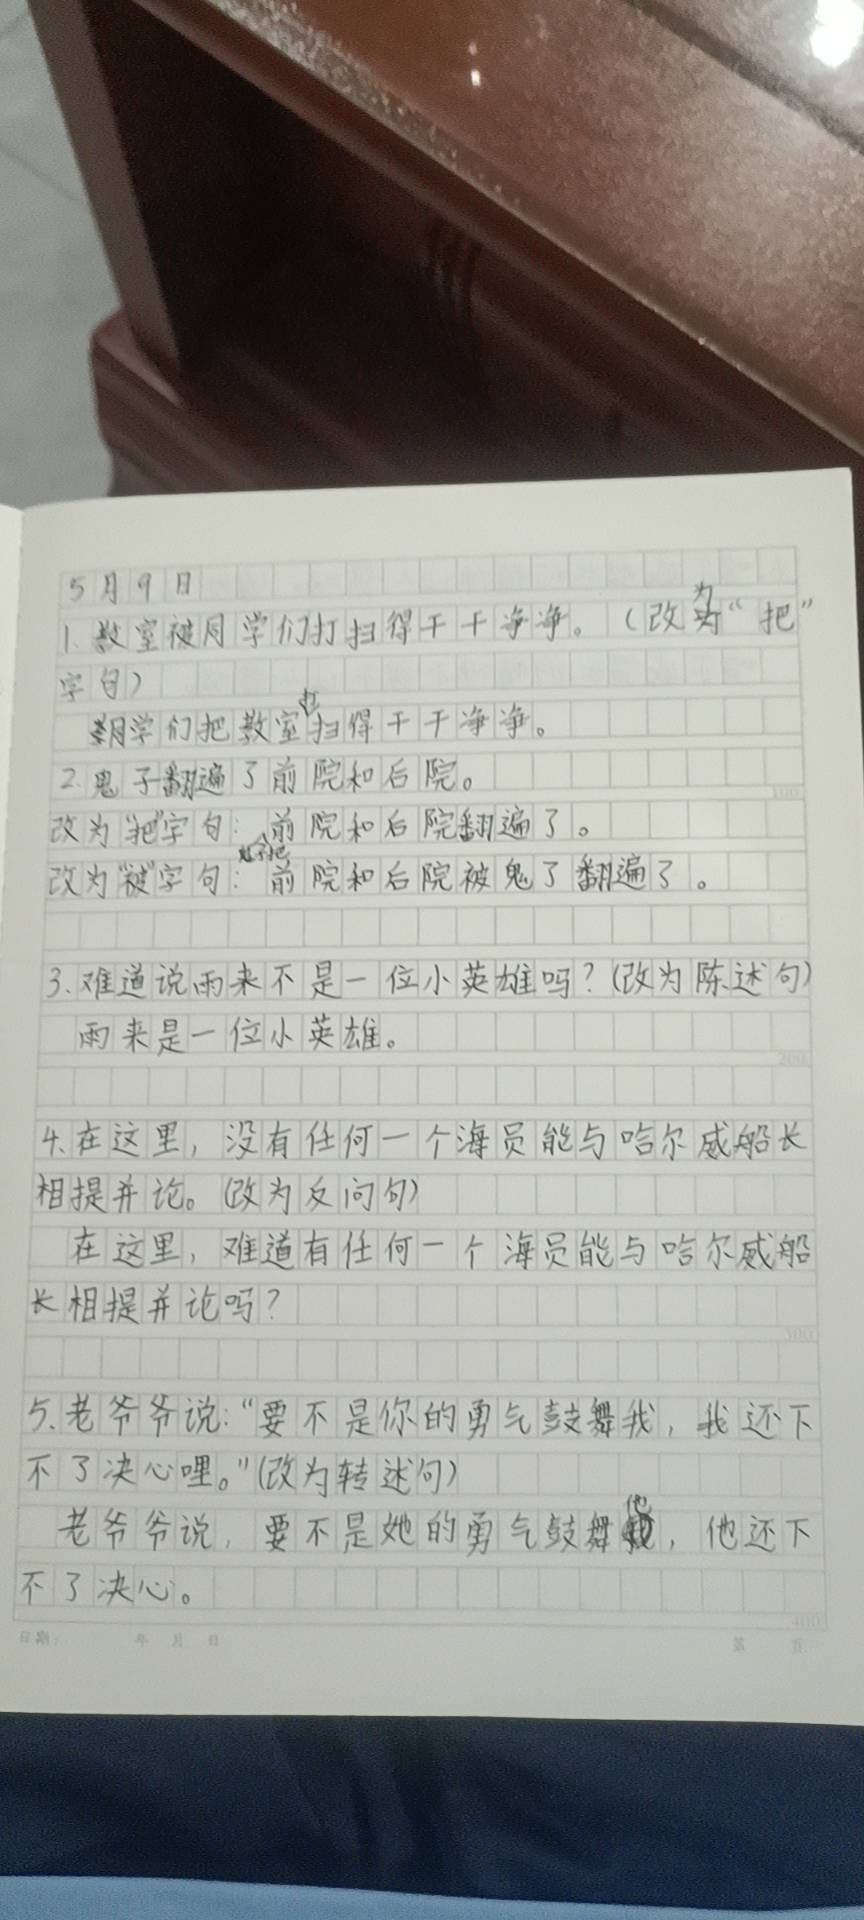 5月9日
1.教室被同学们打扫得干干净净。(改为“把”
字句)
同学们把教室打扫得干干净净。
2.鬼子翻遍了前院和后院。
改为“把”字句:鬼子把前院和后院翻遍了。
改为“被”字句:前院和后院被鬼了翻遍了。
3.难道说雨来不是一位小英雄吗?(改为陈述句)
雨来是一位小英雄。
4.在这里,没有任何一个海员能与哈尔威船长
相提并论。(改为反问句)
在这里,难道有任何一个海员能与哈尔威船
长相提并论吗?
5.老爷爷说:“要不是你的勇气鼓舞我,我还下
不了决心哩。”(改为转述句)
老爷爷说,要不是她的勇气鼓舞他,他还下
不了决心。
日期: 年 月 日 第 页
100
200
300
400